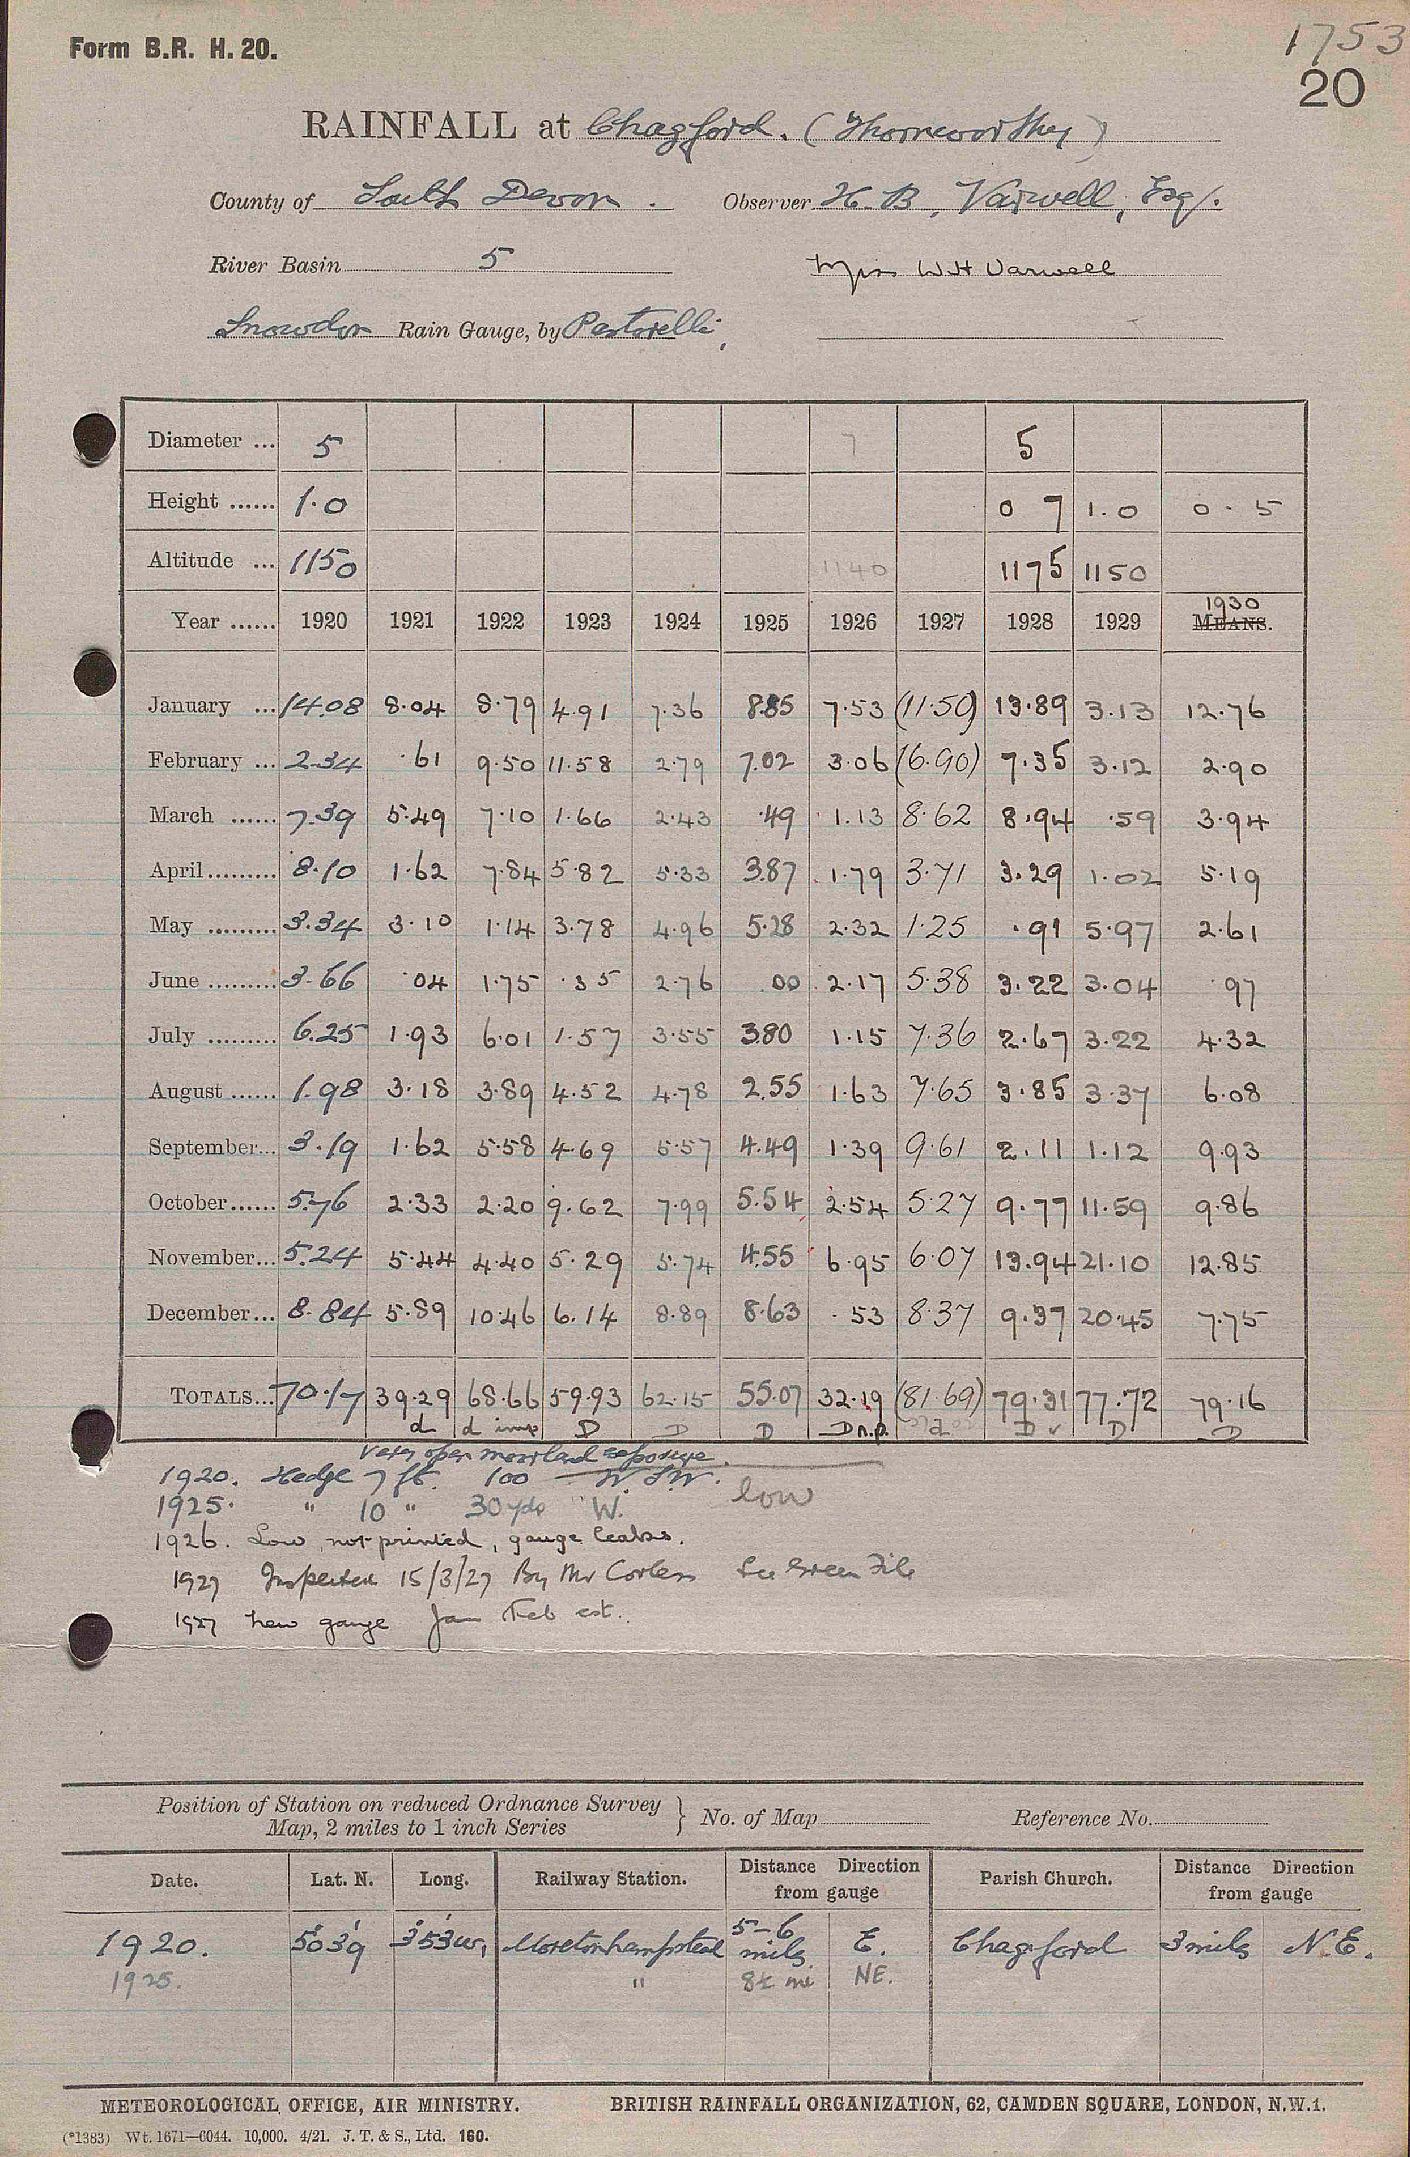 Form B.R. H. 20.
1753
20
RAINFALL at Chagford. (Thornworthy)
County of South Devon. Observer H. B. Varwell, Esq.
River Basin 5 Miss W H Varwell
Snowdon Rain Gauge, by Pastorelli,
Diameter ... 5 7 5
Height ...... 1.0 0 7 1.0 0.5
Altitude ... 1150 1140 1175 1150
Year ...... 1920 1921 1922 1923 1924 1925 1926 1927 1928 1929 1930 MEANS.
January ... 14.08 8.04 8.79 4.91 7.36 8.85 7.53 (11.50) 13.89 3.13 12.76
February ... 2.34 .61 9.50 11.58 2.79 7.02 3.06 (6.90) 7.35 3.12 2.90
March ...... 7.39 5.49 7.10 1.66 2.43 .49 1.13 8.62 8.94 .59 3.94
April ......... 8.10 1.62 7.84 5.82 5.33 3.87 1.79 3.71 3.29 1.02 5.19
May ......... 3.34 3.10 1.14 3.78 4.96 5.28 2.32 1.25 .91 5.97 2.61
June ......... 3.66 .04 1.75 .35 2.76 .00 2.17 5.38 3.22 3.04 .97
July ......... 6.25 1.93 6.01 1.57 3.55 3.80 1.15 7.36 2.67 3.22 4.32
August ...... 1.98 3.18 3.89 4.52 4.78 2.55 1.63 7.65 3.85 3.37 6.08
September... 3.19 1.62 5.58 4.69 5.57 4.49 1.39 9.61 2.11 1.12 9.93
October ...... 5.76 2.33 2.20 9.62 7.99 5.54 2.54 5.27 9.77 11.59 9.86
November... 5.24 5.44 4.40 5.29 5.74 4.55 6.95 6.07 13.94 21.10 12.85
December... 8.84 5.89 10.46 6.14 8.89 8.63 .53 8.37 9.37 20.45 7.75
TOTALS... 70.17 39.29 68.66 59.93 62.15 55.07 32.19 (81.69) 79.31 77.72 79.16
d d imp D D D D n.p. D D D
Very open moorland exposure.
1920. Hedge 7 ft. 100 — W.SW.
1925. " 10 " 30 yds W. low
1926. Low, not printed, gauge leaks.
1927 Inspected 15/3/27 By Mr Corless See Green File
1927 new gauge Jan Feb est.
Position of Station on reduced Ordnance Survey Map, 2 miles to 1 inch Series } No. of Map Reference No.
Date. Lat. N. Long. Railway Station. Distance Direction from gauge Parish Church. Distance Direction from gauge
1920. 50° 39' 3° 53' W. Moretonhampstead 5-6 miles E. Chagford 3 miles N.E.
1925. " NE.
METEOROLOGICAL OFFICE, AIR MINISTRY. BRITISH RAINFALL ORGANIZATION, 62, CAMDEN SQUARE, LONDON, N.W.1.
(*1383) Wt. 1671—6044. 10,000. 4/21. J. T. & S., Ltd. 160.